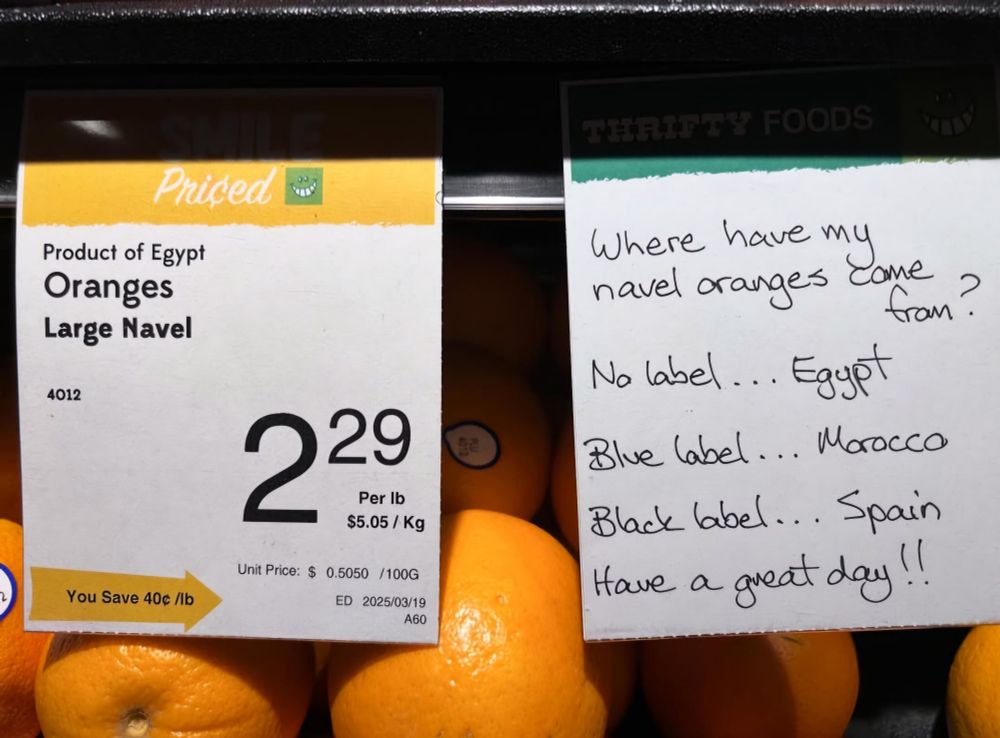 SMILE
Priced
Product of Egypt
Oranges
Large Navel
4012
2 29
Per lb
$5.05 / Kg
Unit Price: $ 0.5050 /100G
You Save 40¢ /lb
ED 2025/03/19
A60
THRIFTY FOODS
Where have my
navel oranges come
from?
No label... Egypt
Blue label... Morocco
Black label... Spain
Have a great day!!